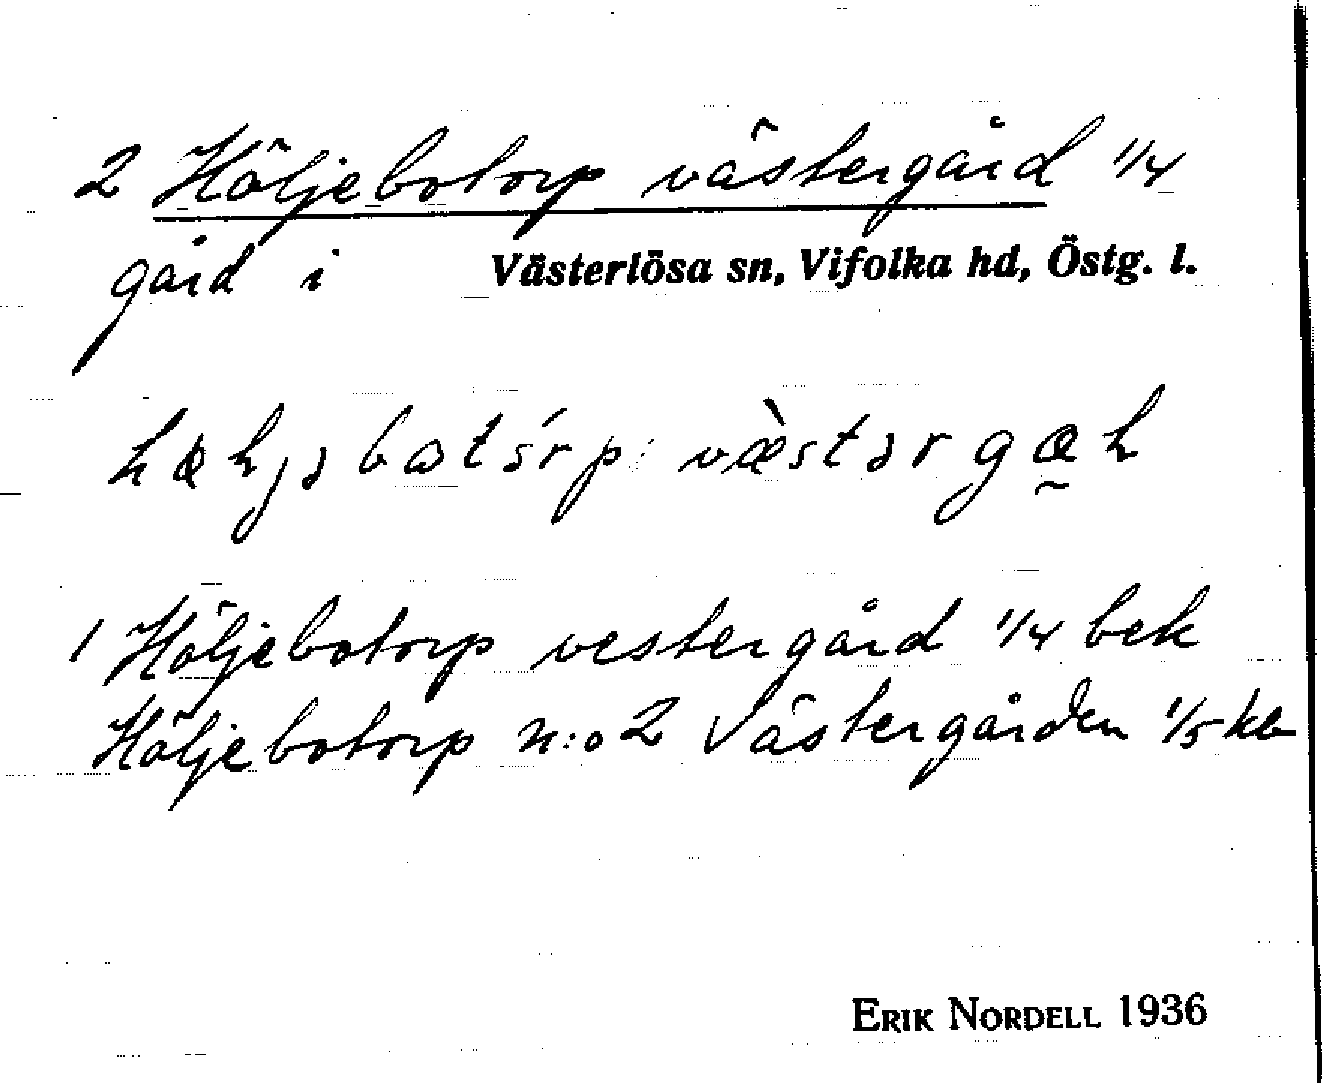 2 Höljebotorp västergård 1/4
gård i Västerlösa sn, Vifolka hd, Östg. l.
1 Höljebotorp vestergård 1/4 bek
Höljebotorp n:o 2 Västergården 1/5 kla
ERIK NORDELL 1936